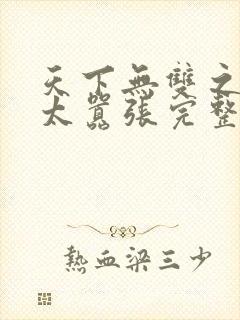 天下無雙之
太囂張完整
熱血梁三少